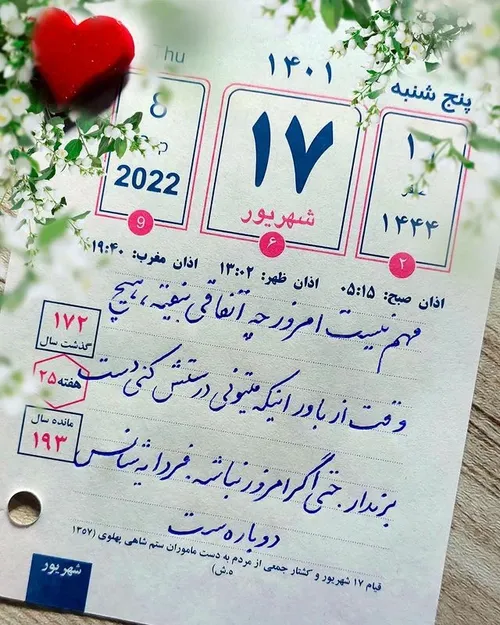 پنج شنبه
۱۴۰۱
Thu
۱۴۴۴
۲
۱۷
شهریور
۶
8
2022
9
اذان صبح: ۰۵:۱۵ اذان ظهر: ۱۳:۰۲ اذان مغرب: ۱۹:۴۰
مهم نیست امروز چه اتفاقی بیفته، هیچ
وقت از باور اینکه میتونی درستش کنی دست
برندار. حتی اگر امروز نباشه. فردا یه شانس
دوباره ست
۱۷۲
گذشت سال
هفته ۲۵
مانده سال
۱۹۳
قیام ۱۷ شهریور و کشتار جمعی از مردم به دست ماموران ستم شاهی پهلوی (۱۳۵۷
ه.ش)
شهریور